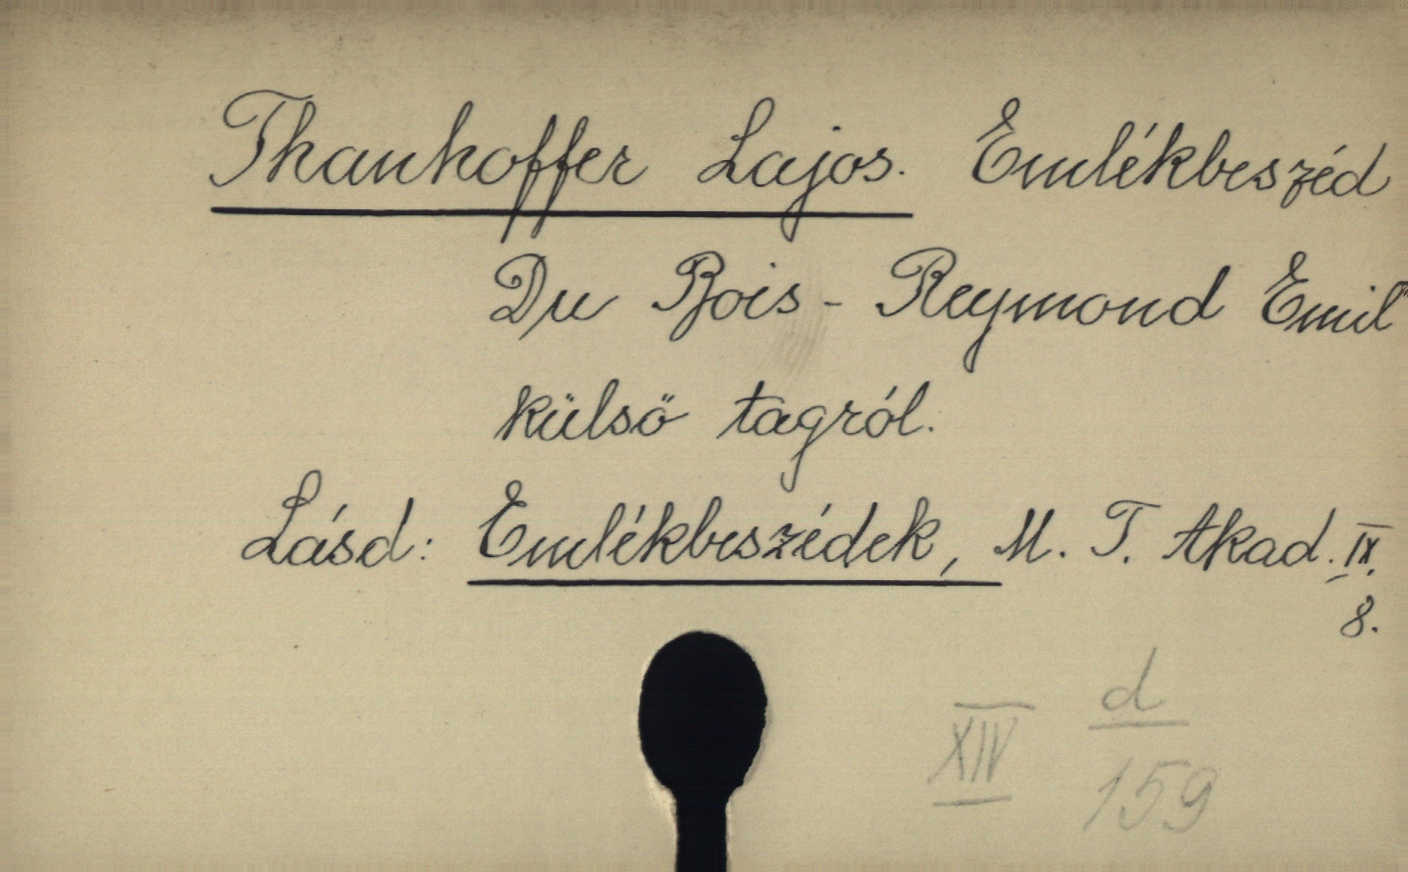 Thanhoffer Lajos. Emlékbeszéd
Du Bois-Reymond Emil
külső tagról.
Lásd: Emlékbeszédek, M. T. Akad. IX.
8.
XIV d
159